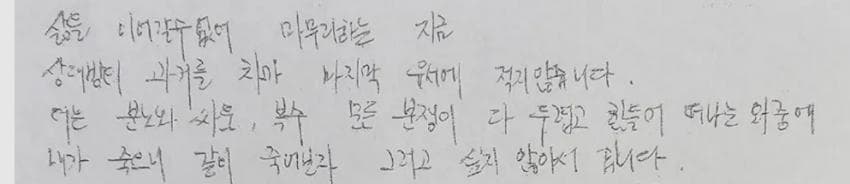 삶을 이어갈수 없어 마무리하는 지금
상대방의 과거를 차마 마지막 유서에 적지않습니다.
더는 분노와 싸움, 복수 모든 분쟁이 다 두렵고 힘들어 떠나는 와중에
내가 죽으니 같이 죽어보자 그러고 싶지 않아서 입니다.